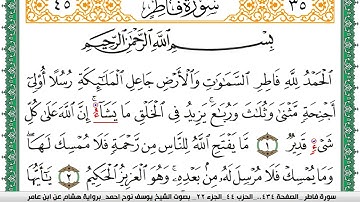 ٤٥ سُورَةُ فَاطِرٍ ٣٥
بِسْمِ اللَّهِ الرَّحْمَٰنِ الرَّحِيمِ
الْحَمْدُ لِلَّهِ فَاطِرِ السَّمَٰوَٰتِ وَالْأَرْضِ جَاعِلِ الْمَلَٰٓئِكَةِ رُسُلًا أُو۟لِىٓ
أَجْنِحَةٍ مَّثْنَىٰ وَثُلَٰثَ وَرُبَٰعَ يَزِيدُ فِى الْخَلْقِ مَا يَشَآءُ إِنَّ اللَّهَ عَلَىٰ كُلِّ
شَىْءٍ قَدِيرٌ ١ مَا يَفْتَحِ اللَّهُ لِلنَّاسِ مِن رَّحْمَةٍ فَلَا مُمْسِكَ لَهَا
وَمَا يُمْسِكْ فَلَا مُرْسِلَ لَهُۥ مِنۢ بَعْدِهِۦ وَهُوَ الْعَزِيزُ الْحَكِيمُ ٢ يَٰٓأَيُّهَا
سورة فاطر _الصفحة ٤٣٤_ الحزب ٤٤_ الجزء ٢٢_ بصوت الشيخ يوسف نوح احمد_ برواية هشام عن ابن عامر